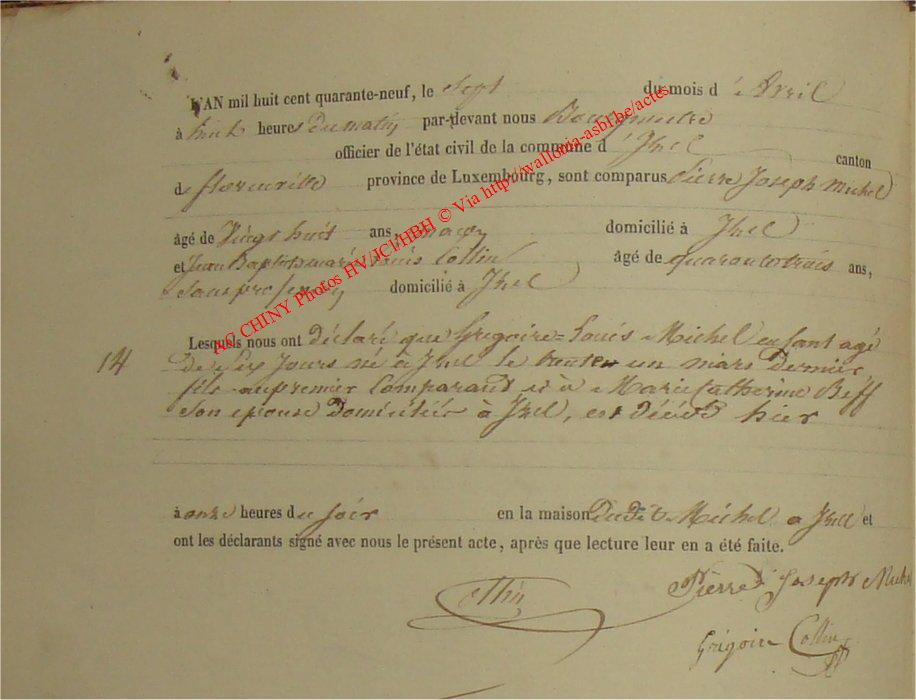 L'AN mil huit cent quarante-neuf, le Sept du mois d'Avril
à huit heures du matin par-devant nous Bourgmestre
officier de l'état civil de la commune d'Izel canton
de florenville province de Luxembourg, sont comparus Pierre Joseph Michel
âgé de Vingt huit ans, maçon domicilié à Izel
et Jean Baptiste Louis Collin âgé de quarante trois ans,
Sans profession domicilié à Izel
Lesquels nous ont déclaré que Grégoire=Louis Michel enfant agé
14 de Six Jours né à Izel le trente un mars dernier
fils au premier Comparant et à Marie Catherine Beff
Son epouse Domiciliée à Izel, est décédé hier
à onze heures du soir en la maison Dudit Michel a Izel et
ont les déclarants signé avec nous le présent acte, après que lecture leur en a été faite.
Collin Pierre Joseph Michel
Grégoire Collin
AC CHINY Photos HV/JCl/HBH © Via http://wallonia-asbl.be/actes